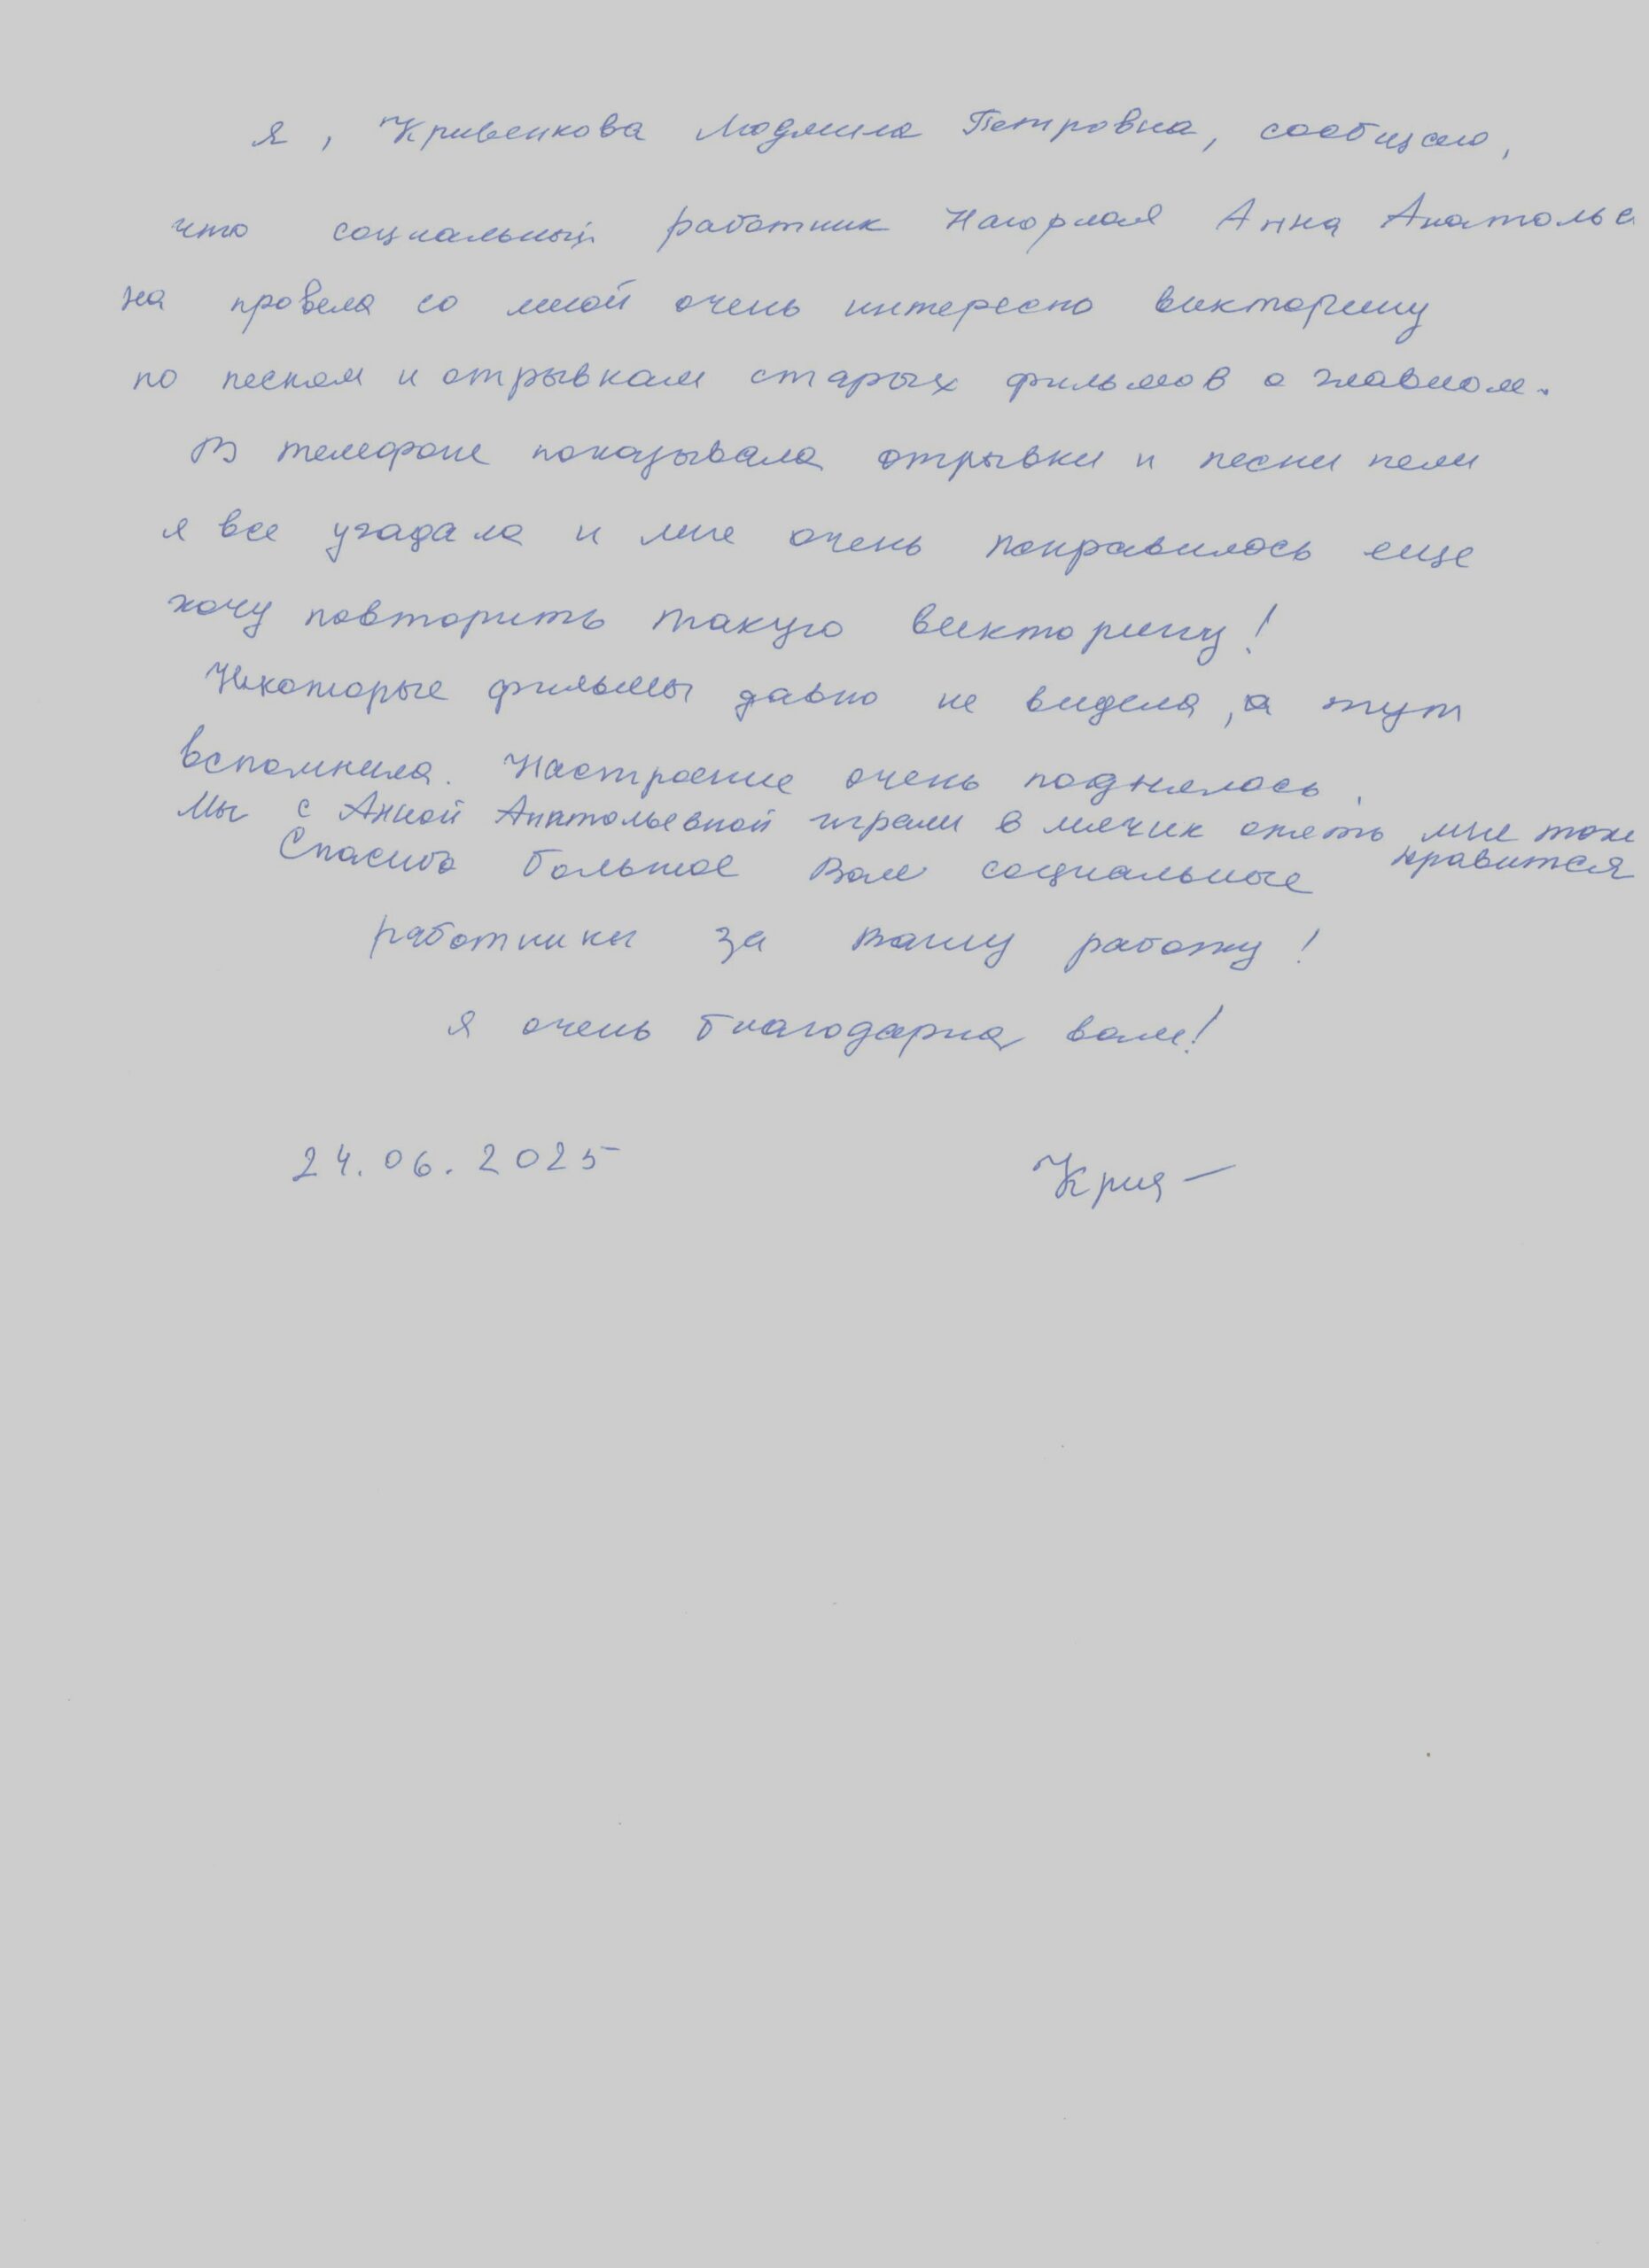 Я, Кривенкова Людмила Петровна, сообщаю,
что социальный работник Нагорная Анна Анатолье
на провела со мной очень интересно викторину
по песням и отрывкам старых фильмов о главном.
В телефоне показывала отрывки и песни пели
я все угадала и мне очень понравилось еще
хочу повторить такую викторину!
Некоторые фильмы давно не видела, а тут
вспомнила. Настроение очень поднялось.
Мы с Анной Анатольевной играли в мячик опять мне тоже
нравится
Спасибо большое Вам социальные
работники за Вашу работу!
Я очень благодарна вам!
24.06.2025